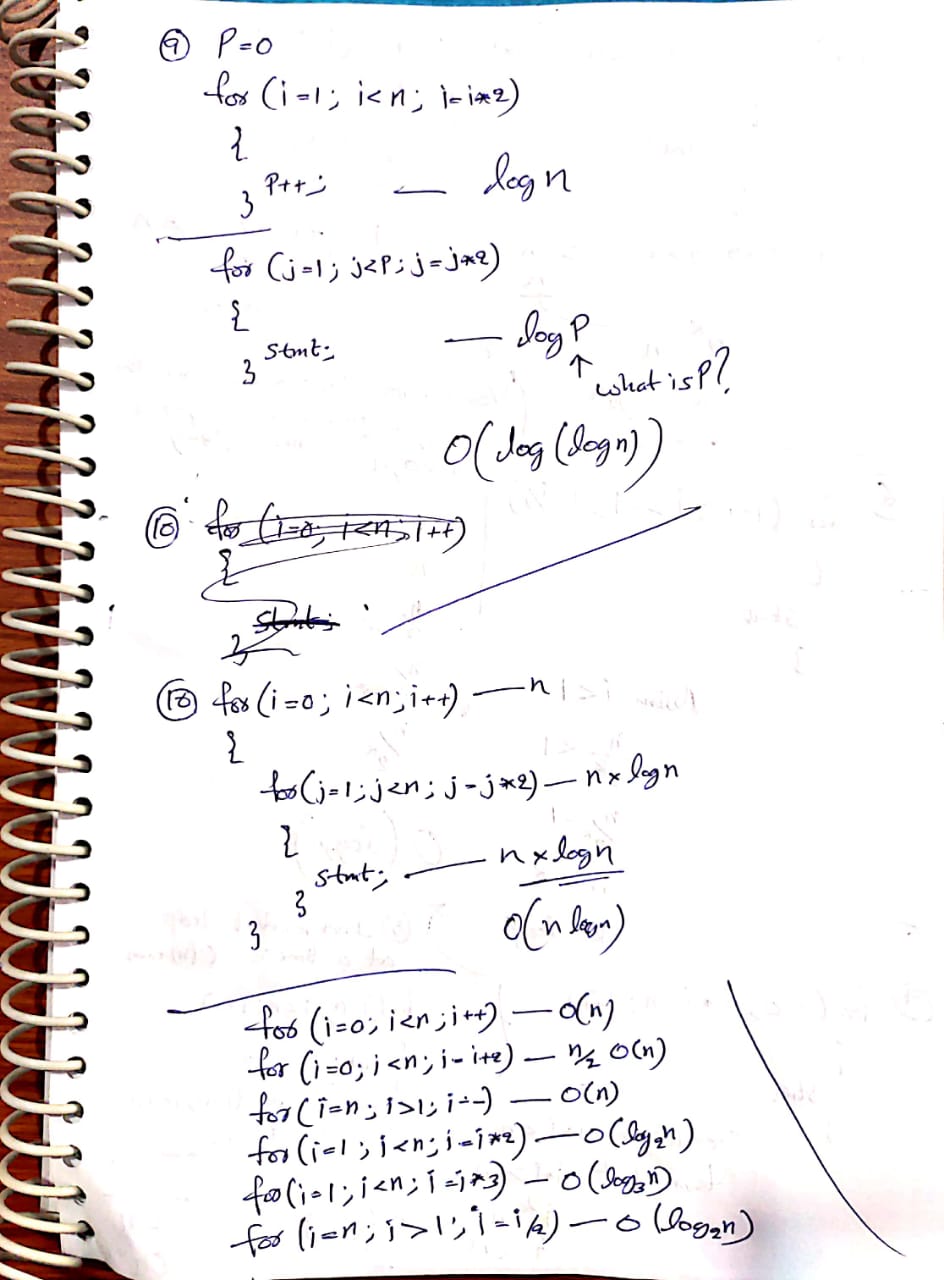 ⑨ P=0
for (i=1; i<n; i=i*2)
{
P++; — log n
}
for (j=1; j<P; j=j*2)
{
stmt; — log P
} ↑ what is P?
O(log (log n))
⑩ for (i=0; i<n; i++)
{
stmt;
}
⑩ for (i=0; i<n; i++) — n
{
for (j=1; j<n; j=j*2) — n × log n
{
stmt; — n × log n
}
} O(n log n)
for (i=0; i<n; i++) — O(n)
for (i=0; i<n; i=i+2) — n/2 O(n)
for (i=n; i>1; i--) — O(n)
for (i=1; i<n; i=i*2) — O(log₂n)
for (i=1; i<n; i=i*3) — O(log₃n)
for (i=n; i>1; i=i/2) — O(log₂n)